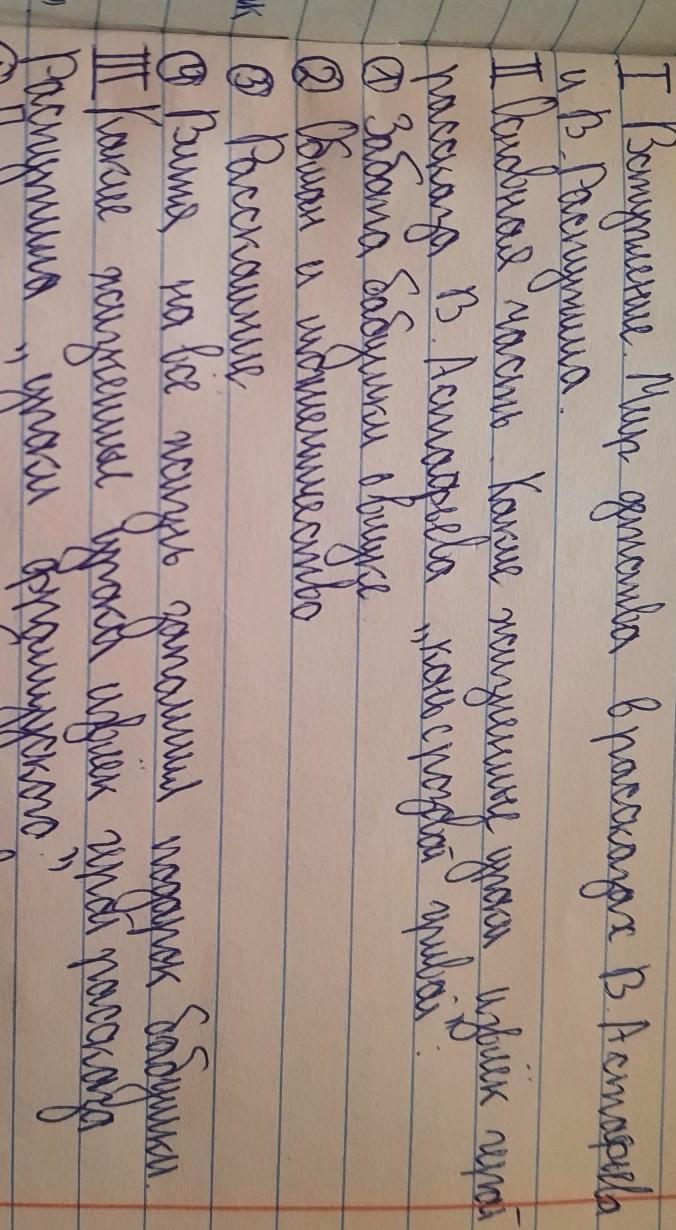 I Вступление. Мир детства в рассказах В. Астафьева
и В. Распутина.
II Основная часть. Какие жизненные уроки извлёк герой
рассказа В. Астафьева „конь с розовой гривой".
① Забота бабушки о внуке
② Обман и мошенничество
③ Расскаиние
④ Витя на всё жизнь запомнил подарок бабушки.
III Какие жизненные уроки извлёк герой рассказа
Распутина „уроки французского"